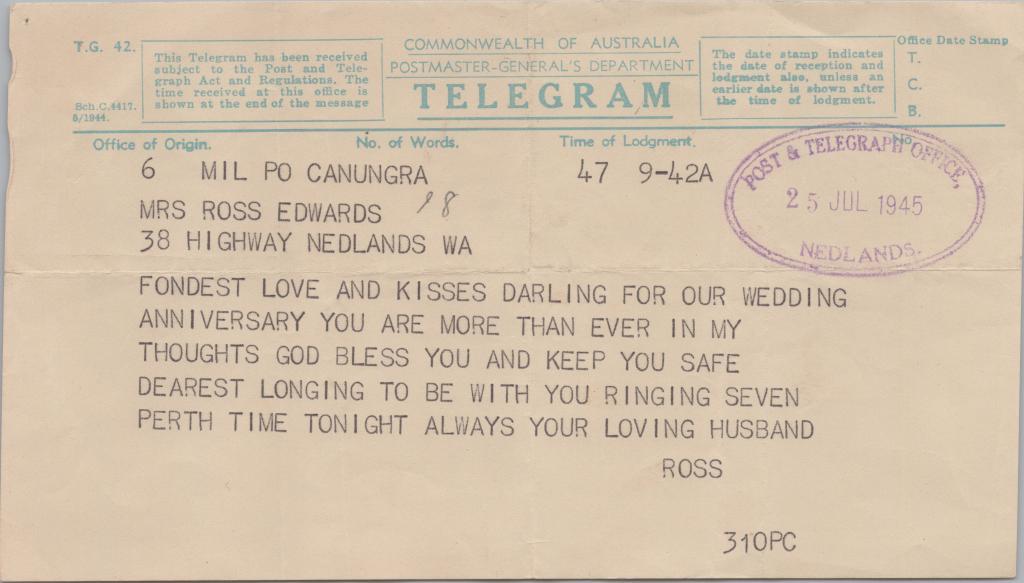 T.G. 42.
This Telegram has been received
subject to the Post and Tele-
graph Act and Regulations. The
time received at this office is
shown at the end of the message
Sch.C.4417.
5/1944.
COMMONWEALTH OF AUSTRALIA
POSTMASTER-GENERAL'S DEPARTMENT
TELEGRAM
The date stamp indicates
the date of reception and
lodgment also, unless an
earlier date is shown after
the time of lodgment.
Office Date Stamp
T.
C.
B.
Office of Origin. No. of Words. Time of Lodgment. No.
6 MIL PO CANUNGRA 47 9-42A
POST & TELEGRAPH OFFICE,
25 JUL 1945
NEDLANDS.
MRS ROSS EDWARDS 18
38 HIGHWAY NEDLANDS WA
FONDEST LOVE AND KISSES DARLING FOR OUR WEDDING
ANNIVERSARY YOU ARE MORE THAN EVER IN MY
THOUGHTS GOD BLESS YOU AND KEEP YOU SAFE
DEAREST LONGING TO BE WITH YOU RINGING SEVEN
PERTH TIME TONIGHT ALWAYS YOUR LOVING HUSBAND
ROSS
310PC